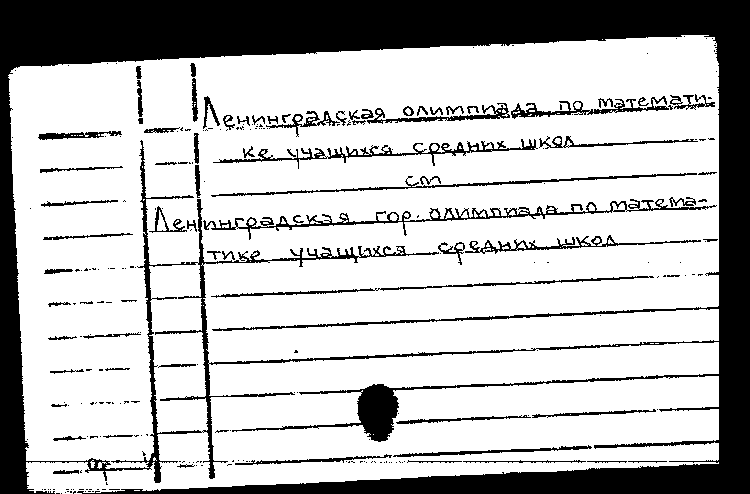 Ленинградская олимпиада по математи-
ке учащихся средних школ
см
Ленинградская гор. олимпиада по матема-
тике учащихся средних школ